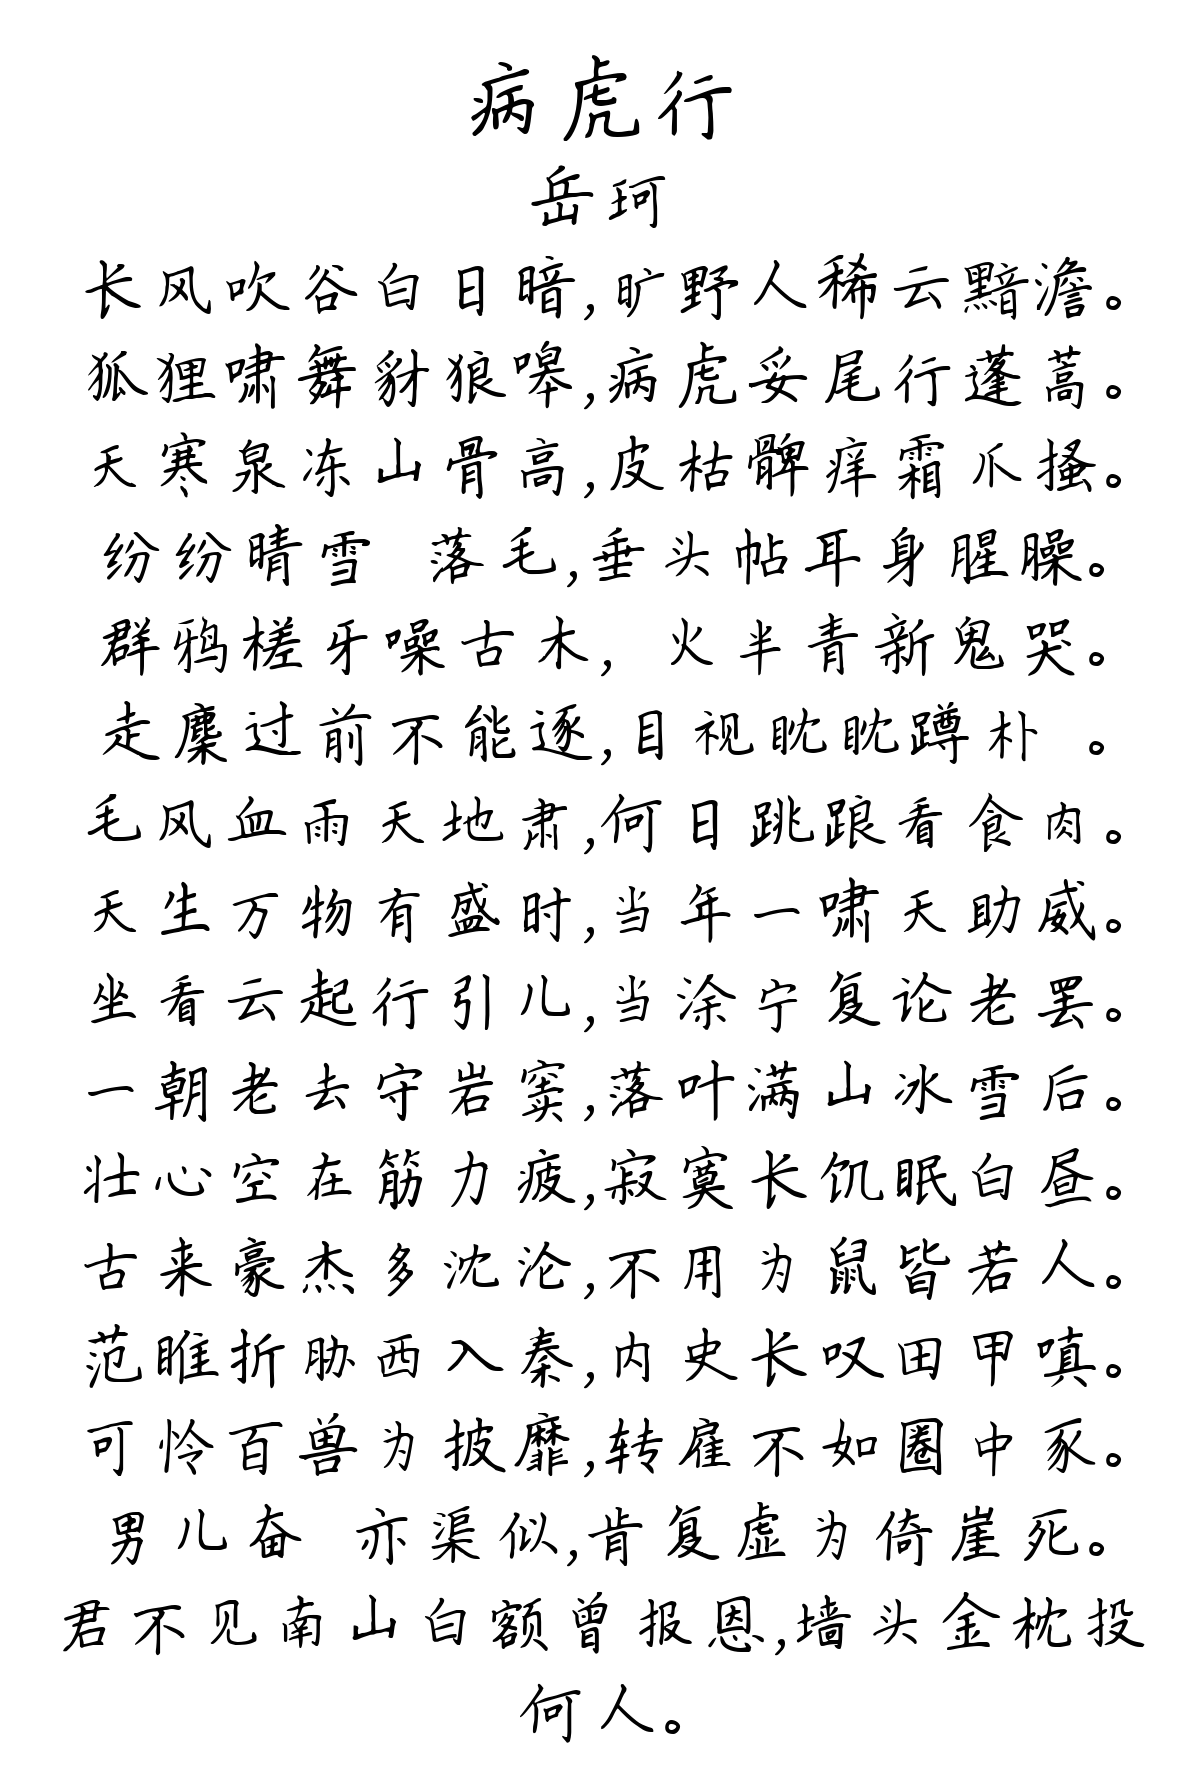 病虎行
岳珂
长风吹谷白日暗,旷野人稀云黯澹。
狐狸啸舞豺狼嗥,病虎妥尾行蓬蒿。
天寒泉冻山骨高,皮枯髀痒霜爪搔。
纷纷晴雪 落毛,垂头帖耳身腥臊。
群鸦槎牙噪古木, 火半青新鬼哭。
走麇过前不能逐,目视眈眈蹲朴 。
毛风血雨天地肃,何日跳踉看食肉。
天生万物有盛时,当年一啸天助威。
坐看云起行引儿,当涂宁复论老罢。
一朝老去守岩窦,落叶满山冰雪后。
壮心空在筋力疲,寂寞长饥眠白昼。
古来豪杰多沈沦,不用为鼠皆若人。
范睢折胁西入秦,内史长叹田甲嗔。
可怜百兽为披靡,转雇不如圈中豕。
男儿奋 亦渠似,肯复虚为倚崖死。
君不见南山白额曾报恩,墙头金枕投
何人。